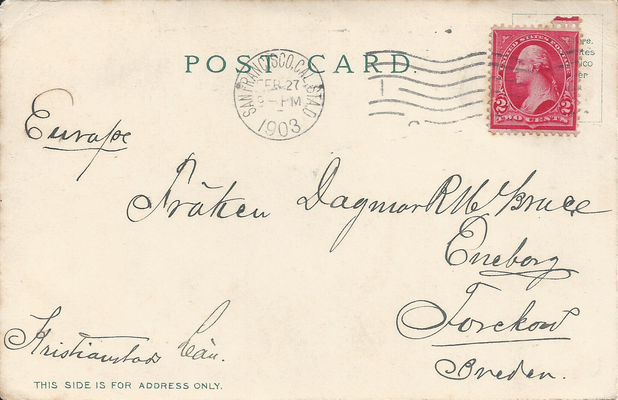 POST CARD.
SAN FRANCISCO, CAL. STA. D
FEB 27
9 - PM
1903
UNITED STATES POSTAGE
2 2
TWO CENTS
Europe
Fröken Dagmar R. Mc Bruce
Eneborg
Torekow
Sveden.
Kristianstads Län.
THIS SIDE IS FOR ADDRESS ONLY.